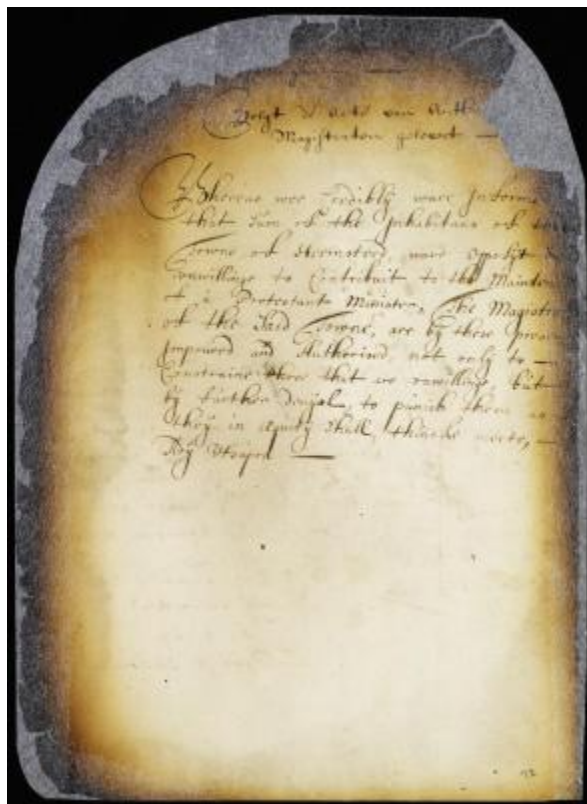 Volgt d'Acte van Auth
Magistraten gelevert —
Whereas wee Credibly ware Informe
that Sum of the Inhabitans of the
Towne of Heemsteed, ware opposit &
unwillinge to Contribuit to the Mainten
a Protestants Ministre, The Magistr
of the Said Towne, are by these prese
Impowred and Authorised, not only to —
Constraine those that are unwillinge, but
by further Denyal, to punish them as
they in equity Shall, thincke meete, —